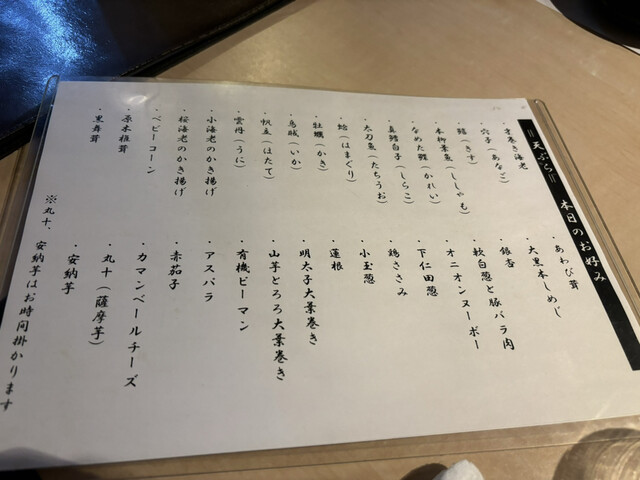 =天ぷら= 本日のお好み
・才巻き海老
・穴子(あなご)
・鱚(きす)
・本柳葉魚(ししゃも)
・なめた鰈(かれい)
・太刀魚(たちうお)
・真鱈白子(しらこ)
・蛤(はまぐり)
・牡蠣(かき)
・烏賊(いか)
・帆立(ほたて)
・雲丹(うに)
・小海老のかき揚げ
・桜海老のかき揚げ
・ベビーコーン
・原木椎茸
・黒舞茸
・あわび茸
・大黒本しめじ
・銀杏
・軟白葱と豚バラ肉
・オニオンヌーボー
・下仁田葱
・鶏ささみ
・小玉葱
・蓮根
・明太子大葉巻き
・山芋とろろ大葉巻き
・有機ピーマン
・アスパラ
・赤茄子
・カマンベールチーズ
・丸十(薩摩芋)
・安納芋
※丸十、安納芋はお時間掛かります